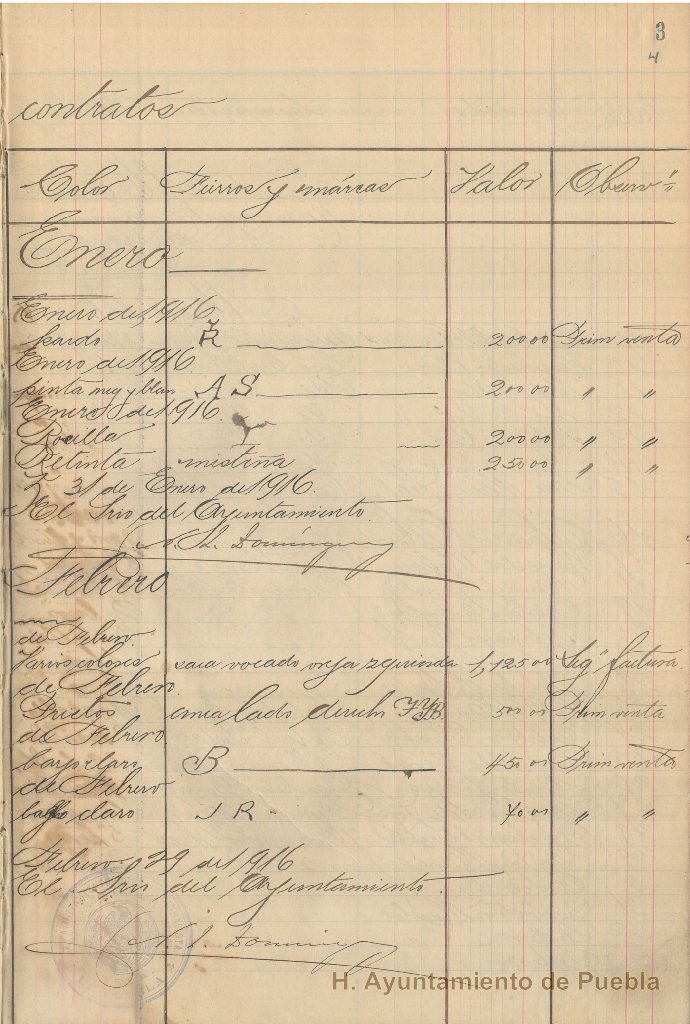 3
4
contratos
Color Fierros y márcas Valor Observ
Enero
Enero de 1916
pardo R 200 00 Prim venta
Enero de 1916
pinta neg y blan A S 200 00 " "
Enero de 1916
Rocilla 200 00 " "
Retinta mistiña 250 00 " "
31 de Enero de 1916.
El Srio del Ayuntamiento.
N. L. Domínguez
Febrero
de Febrero.
Varios colores vocado oreja 1,125 00 Sig factura.
de Febrero.
Prietos anca lado derecho 500 00 Prim venta
de Febrero
bayo claro B 450 00 Prim venta
de Febrero
bayo claro J R. 70 00 " "
Febrero 29 de 1916
El Srio del Ayuntamiento.
H. Ayuntamiento de Puebla